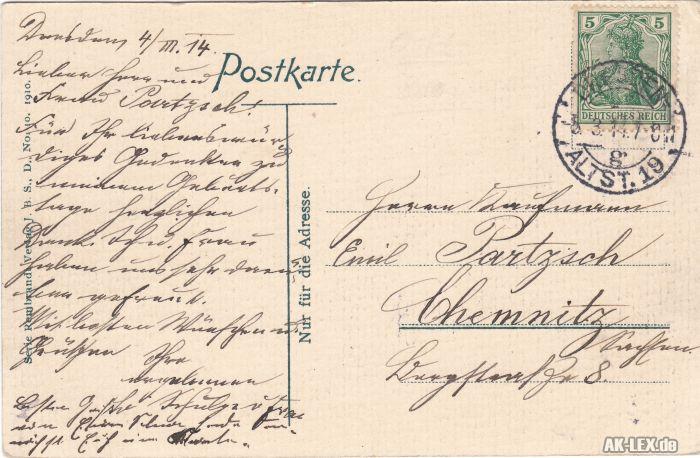 Dresden, 4/III.14.
Lieber Herr und
Frau Partzsch!
Für Ihr liebenswür
diges Gedenken zu
meinem Geburts-
tage herzlichen
Dank. Ich u. Frau
haben uns sehr
gefreut.
Mit besten Wünschen u.
Grüssen Ihre
Beste Grüße
Serie Rembrandt Verlag J. B. S., D. No. 10. 1910.
Postkarte.
Nur für die Adresse.
5 5
DEUTSCHES REICH
ALTST. 19
Herrn Kaufmann
Emil Partzsch
Chemnitz
Sachsen.
Bergstraße 8.
AK-LEX.de